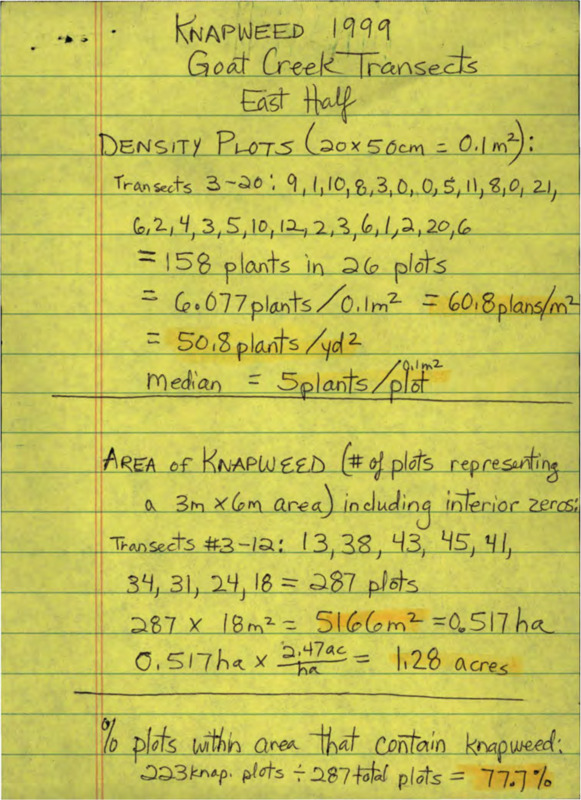 KNAPWEED 1999
Goat Creek Transects
East Half
DENSITY PLOTS (20x50cm = 0.1m²):
Transects 3-20: 9,1,10,8,3,0,0,5,11,8,0,21,
6,2,4,3,5,10,12,2,3,6,1,2,20,6
= 158 plants in 26 plots
= 6.077plants/0.1m² = 60.8plans/m²
= 50.8plants/yd²
median = 5plants/plot 0.1m²
AREA of KNAPWEED (# of plots representing
a 3m x 6m area) including interior zeros:
Transects #3-12: 13, 38, 43, 45, 41,
34, 31, 24, 18 = 287 plots
287 x 18m² = 5166m² = 0.517ha
0.517ha x 2.47ac/ha = 1.28 acres
% plots within area that contain knapweed:
223knap. plots ÷ 287total plots = 77.7%